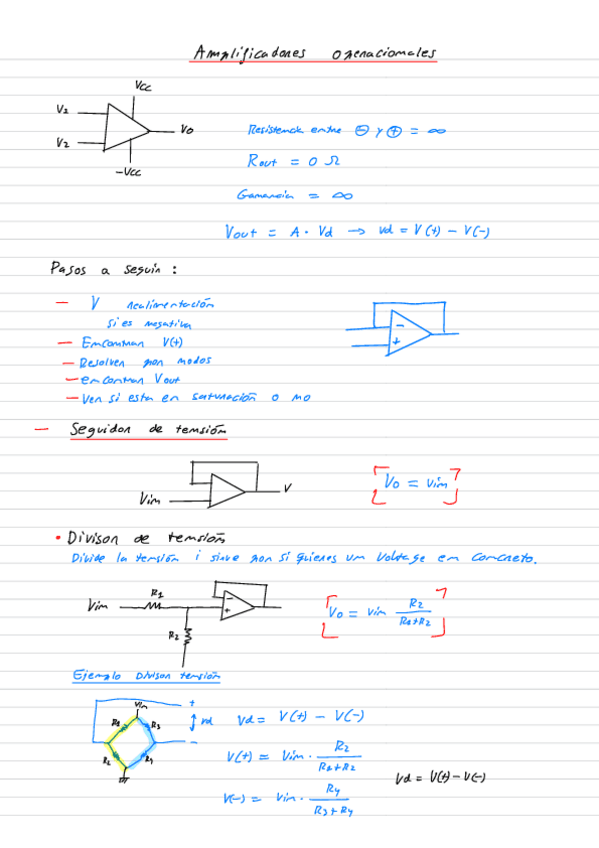 Amplificadores operacionales
Vcc
V1
V2
Vo
-Vcc
Resistencia entre ⊖ y ⊕ = ∞
Rout = 0 Ω
Ganancia = ∞
Vout = A · Vd → vd = V(+) - V(-)
Pasos a seguir :
- V realimentación
si es negativa
- Encontrar V(+)
- Resolver por nodos
- encontrar Vout
- Ver si esta en saturación o no
-
+
- Seguidor de tensión
Vin
V
Vo = Vin
• Divisor de tensión
Divide la tensión i sirve por si quieres un voltage en concreto.
Vin
R1
R2
-
+
Vo = Vin R2 / R1+R2
Ejemplo divisor tensión
Vin
+
R1
R3
R2
R4
vd
-
Vd = V(+) - V(-)
V(+) = Vin · R2 / R1+R2
V(-) = Vin · R4 / R3+R4
Vd = V(+) - V(-)